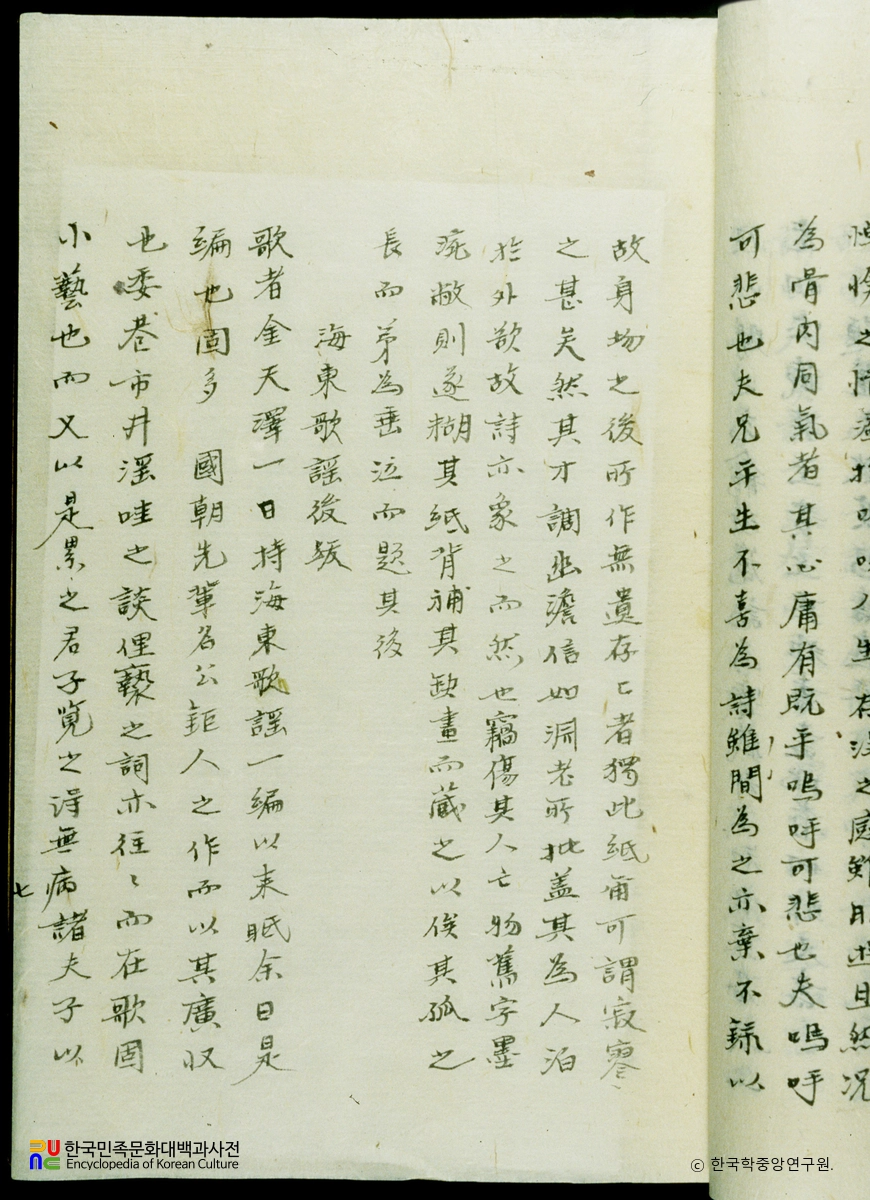 可悲也夫兄平生不喜為詩雖間為之亦棄不錄以
故身歿之後所作無遺存亡者獨此紙爾可謂寂寥
之甚矣然其才調幽澹信如洞老所批盖其為人泊
於外欲故詩亦象之而然也竊傷其人亡物舊字墨
漶敝則遂糊其紙背補其缺畫而藏之以俟其孤之
長而弟為垂泣而題其後
海東歌謠後跋
歌者金天澤一日持海東歌謠一編以来眎余曰是
編也固多 國朝先軰名公鉅人之作而以其廣収
也委巷市井滛哇之談俚褻之詞亦徃〻而在歌固
小藝也而又以是累之君子覽之得無病諸夫子以
為骨肉同氣者其心庸有既乎嗚呼可悲也夫嗚呼
七
한국민족문화대백과사전
Encyclopedia of Korean Culture
ⓒ 한국학중앙연구원.